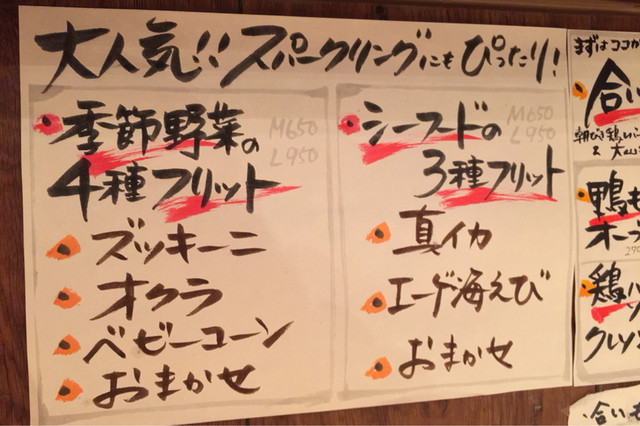 大人気!! スパークリングにもぴったり!
季節野菜の
M650
L950
4種フリット
ズッキーニ
オクラ
ベビーコーン
おまかせ
シーフードの
M650
L950
3種フリット
真イカ
エーゲ海えび
おまかせ
まずはココか
合い
鴨も
オーブ
鶏ハ
クレソン
合いも